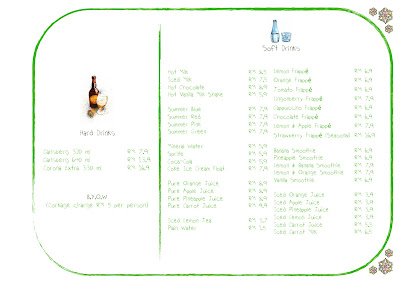 Hard Drinks
Carlsberg 320 ml RM 7,9
Carlsberg 640 ml RM 13,9
Corona extra 330 ml RM 16,9
B.Y.O.W
(Corkage charge RM 5 per person)
Soft Drinks
Hot Milo RM 6,5
Iced Milo RM 7,5
Hot Chocolate RM 6,9
Hot Vanilla Milk Shake RM 5,9
Summer Blue RM 7,9
Summer Red RM 7,9
Summer Pink RM 7,9
Summer Green RM 7,9
Mineral Water RM 3,9
Sprite RM 5,9
Coca-Cola RM 5,9
Coke Ice Cream Float RM 7,9
Pure Orange Juice RM 6,9
Pure Apple Juice RM 6,9
Pure Pineapple Juice RM 6,9
Pure Carrot Juice RM 9,9
Iced Lemon Tea RM 5,7
Plain Water RM 3,5
Lemon Frappé RM 6,9
Orange Frappé RM 6,9
Tomato Frappé RM 6,9
Gingerberry Frappé RM 7,9
Cappuccino Frappé RM 6,9
Chocolate Frappé RM 6,9
Lemon & Apple Frappé RM 7,9
Strawberry Frappé (Seasonal) RM 16,9
Banana Smoothie RM 6,9
Pineapple Smoothie RM 6,9
Lemon & Banana Smoothie RM 7,9
Lemon & Orange Smoothie RM 7,9
Vanilla Smoothie RM 6,9
Iced Orange Juice RM 3,9
Iced Apple Juice RM 3,9
Iced Pineapple Juice RM 3,9
Iced Lemon Juice RM 3,9
Iced Carrot Juice RM 5,5
Iced Carrot Milk RM 6,5